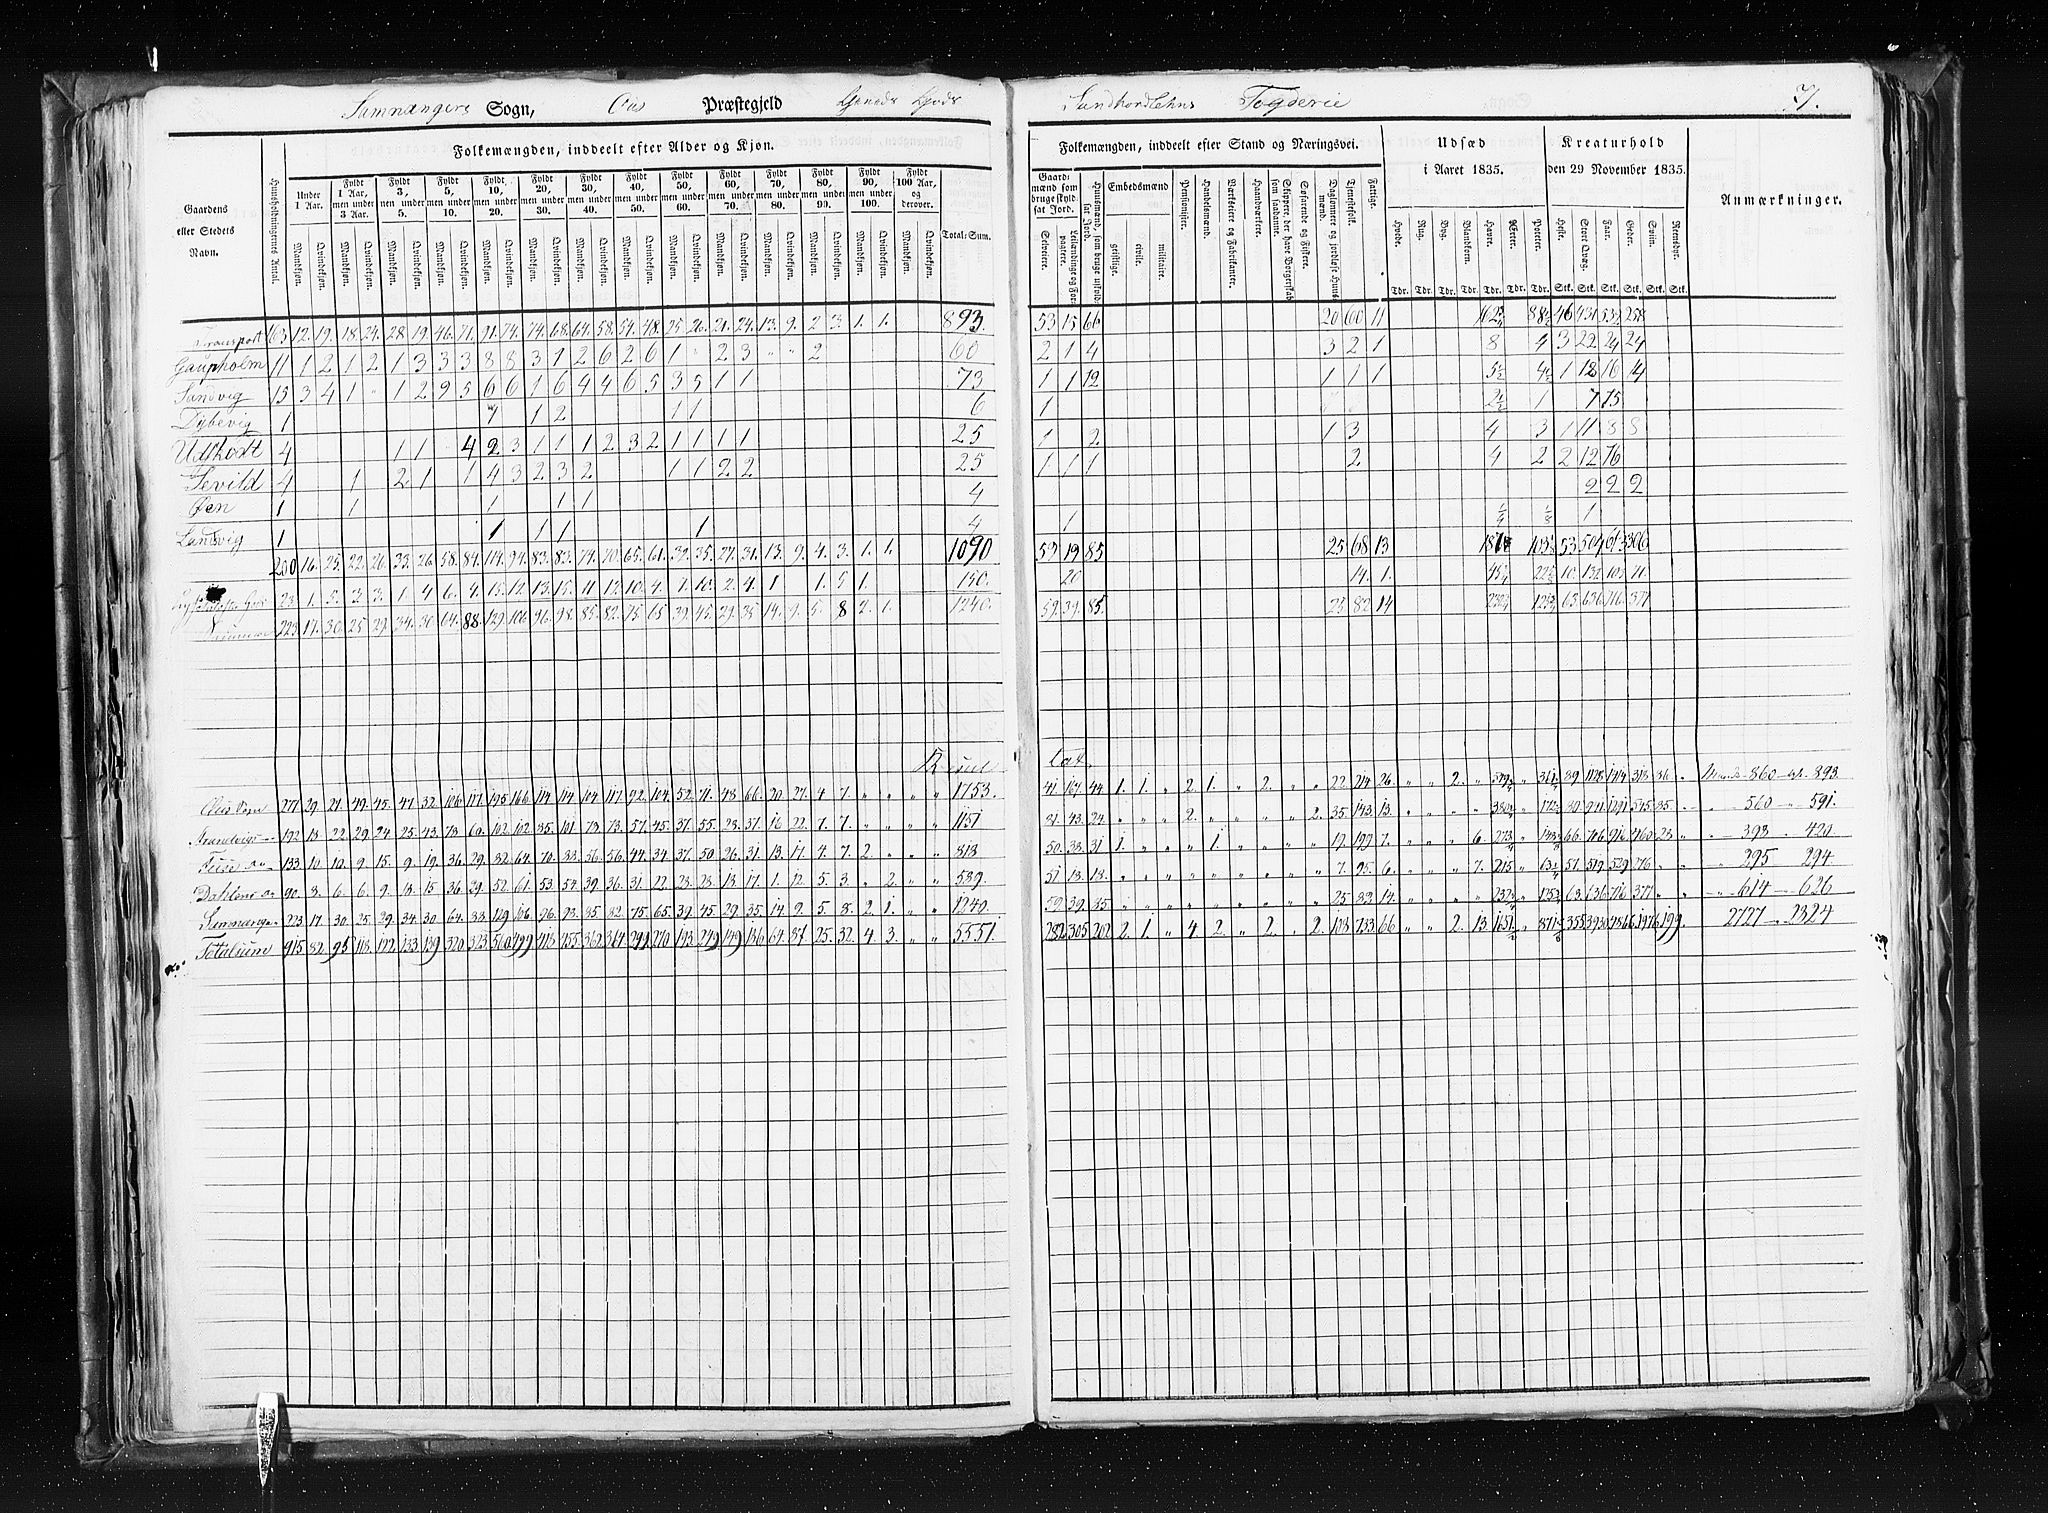 Samnangers Sogn, Oos Præstegjeld
Sundhordlehns Fogderie 71.
Gaardens eller Stedets Navn.
Huusholdningernes Antal.
Folkemængden, inddeelt efter Alder og Kjøn.
Under 1 Aar. Fyldt 1 Aar, men under 3 Aar. Fyldt 3, men under 5. Fyldt 5, men under 10. Fyldt 10, men under 20. Fyldt 20, men under 30. Fyldt 30, men under 40. Fyldt 40, men under 50. Fyldt 50, men under 60. Fyldt 60, men under 70. Fyldt 70, men under 80. Fyldt 80, men under 90. Fyldt 90, men under 100. Fyldt 100 Aar, og derover. Total-Sum.
Mandkjøn. Qvindekjøn. Mandkjøn. Qvindekjøn. Mandkjøn. Qvindekjøn. Mandkjøn. Qvindekjøn. Mandkjøn. Qvindekjøn. Mandkjøn. Qvindekjøn. Mandkjøn. Qvindekjøn. Mandkjøn. Qvindekjøn. Mandkjøn. Qvindekjøn. Mandkjøn. Qvindekjøn. Mandkjøn. Qvindekjøn. Mandkjøn. Qvindekjøn. Mandkjøn. Qvindekjøn. Mandkjøn. Qvindekjøn.
Folkemængden, inddeelt efter Stand og Næringsvei.
Udsæd i Aaret 1835.
Kreaturhold den 29 November 1835.
Anmærkninger.
Gaardmænd som bruge skyldsat Jord. Selveiere. Leilændinge og Forpagtere. Huusmænd, som bruge uskyldsat Jord. Embedsmænd geistlige. civile. militaire. Pensionister. Handelsmænd. Værkseiere og Fabrikanter. Haandværkere. Skippere, der have Borgerskab som saadanne. Søfarende og Fiskere. Daglønnere og jordløse Huusmænd. Tjenestefolk. Fattige.
Hvede. Rug. Byg. Blandkorn. Havre. Ærter. Poteter. Heste. Stort Qvæg. Faar. Geder. Sviin. Rensdyr.
Tdr. Tdr. Tdr. Tdr. Tdr. Tdr. Tdr. Stk. Stk. Stk. Stk. Stk. Stk.
Transport 163 12. 19. 18. 24. 28. 19. 46. 71. 91. 74. 74. 68. 64. 58. 54. 48. 25. 26. 21. 24. 13. 9. 2 3. 1. 1. 893. 53 15 66 20 60 11
Gaupholm 11 1 2 1 2 1 3 3 3 8 8 3 1 2 6 2 6 1 " 2 3 " " 2 60 2 1 4 3 2 1 8 4 3 22 24 24
Sandvig 15 3 4 1 " 1 2 9 5 6 6 1 6 4 4 6 5 3 5 1 1 73 1 1 12 1 1 1 5½ 4½ 1 18 16 14
Dybevig 1 1 1 2 1 1 6 1 2½ 1 7 15
Udskot 4 1 1 4 2 3 1 1 1 2 3 2 1 1 1 1 25 1 2 1 3 4 3 1 11 3 8
Tevild 4 1 2 1 1 4 3 2 3 2 1 1 2 2 25 1 1 1 2 4 2 2 12 16
Øen 1 1 1 1 1 4 2 2 2
Landvig 1 1 1 1 1 4 1 ¼ ⅛ 1
200 16. 25. 22. 26. 33. 26. 58. 84. 114. 94. 83. 83. 74. 70. 65. 61. 32. 35. 27. 31. 13. 9. 4. 3. 1. 1. 1090 53 19 85 25 68 13
23. 1. 5. 3. 3. 1. 4 6. 4. 15. 12. 13. 15. 11 12. 10. 4. 7. 10. 2. 4. 1 1. 5 1. 150. 20 14. 1.
223. 17. 30. 25 29. 34. 30. 64. 88. 129. 106. 96. 98. 85. 82. 75. 65 39. 45. 29. 35 14. 9. 5. 8 2. 1. 1240. 59. 39. 85. 25 82 14 63. 636. 716. 377
Resul tat.
Oos Sogn 277 29. 27. 49. 45. 47. 32. 106. 117. 195 166. 114 114 104 117. 92. 104. 52. 71. 48. 66. 20. 27. 4. 7. " " " " 1753. 41 167. 44. 1. 1. " 2. 1. " 2. " " 22. 214 26. " " 2. Mænd. 860 893.
Strandvigs 192 13. 22. 29. 24. 25. 43. 73. 60. 102. 102. 85. 101. 73. 73. 57. 45. 37. 55. 28. 37. 16 22. 7. 7. " " " " 1151 81. 43. 24. 2. 2. 35. 143. 13. 560 " 591.
Fuse 133 10 10. 9. 15. 9. 19. 36. 29. 82. 64. 70. 56. 56. 44. 34. 37. 50 26. 31. 13. 17. 4. 7. 2. " " " 818 50. 38. 31 1. 1. 19. 199 7. 6. 393 420.
Dahlens 90. 8. 6. 6. 9. 18. 15. 36. 29. 52. 61. 53. 54. 39. 36. 31. 22. 23. 23. 18. 17. 1. 12. 5. 3. " 2. " " 589. 51 18. 18. 7. 95. 6. 7. 295 294
Samnanger 223 17. 30. 25. 29. 34. 30. 64. 88. 129 106. 96. 98. 85. 82. 75. 65. 39. 45. 29. 35. 14. 9. 5. 8. 2. 1. " " 1240. 59. 39. 85. 25 82 14. 63. 636. 716. 377. 614 626
Totalsum 915 82. 95 118. 122. 133 139 320. 323 560 499 418. 455 362 364 299 270 193. 249 149 186 64. 87 25. 32. 4. 3. " " 5551. 282 305 202 2. 1. " 4 2. " 2. " 2. 108 733 66 " " 2. 13. 2727 2824